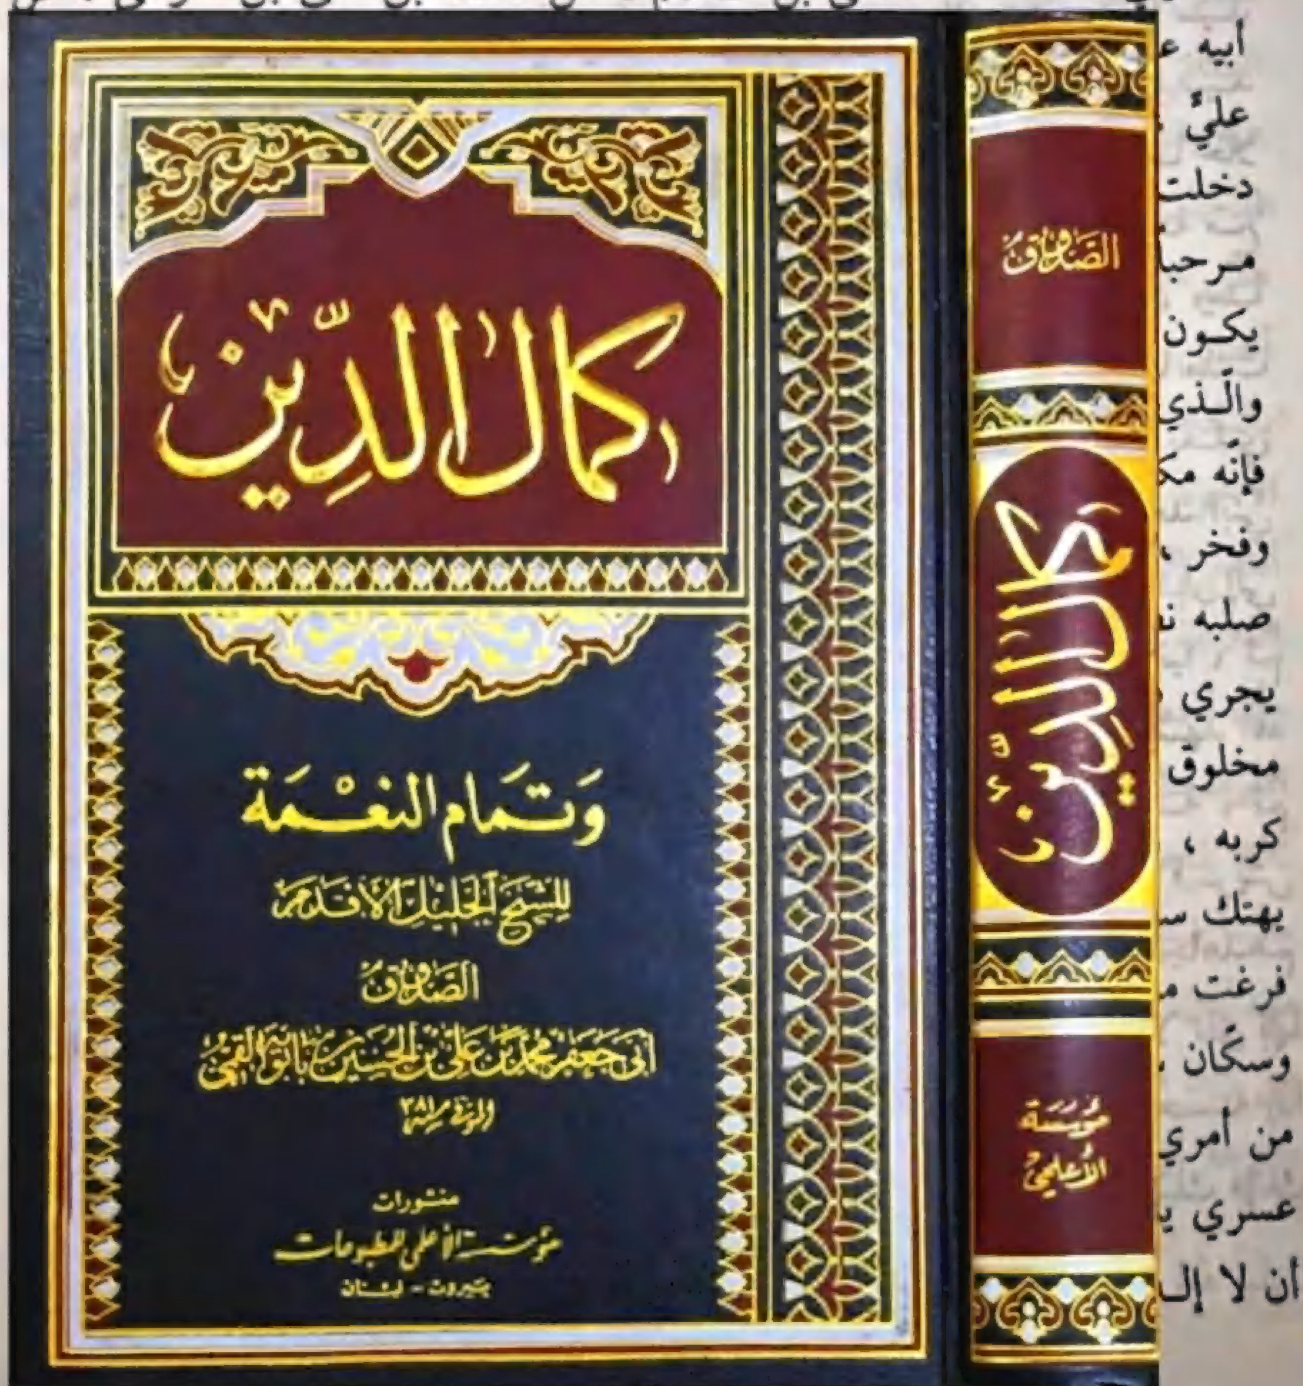 كمال الدين
وَتَمَام النعْمَة
للشيخ الجليل الأقدم
الصدوق
أبي جعفر محمد بن علي بن الحسين بن بابويه القمي
المتوفى سنة ٣٨١
منشورات
مؤسسة الأعلمي للمطبوعات
بيروت - لبنان
الصدوق
كمال الدين
مؤسسة
الأعلمي
أبيه
عليٌّ
دخلت
مـرحباً
يكـون
والّـذي
فإنّه
وفخر ،
صلبه
يجري
مخلوق
كربه ،
يهتك
فرغت
وسكّان
من أمري
عسري
أن لا